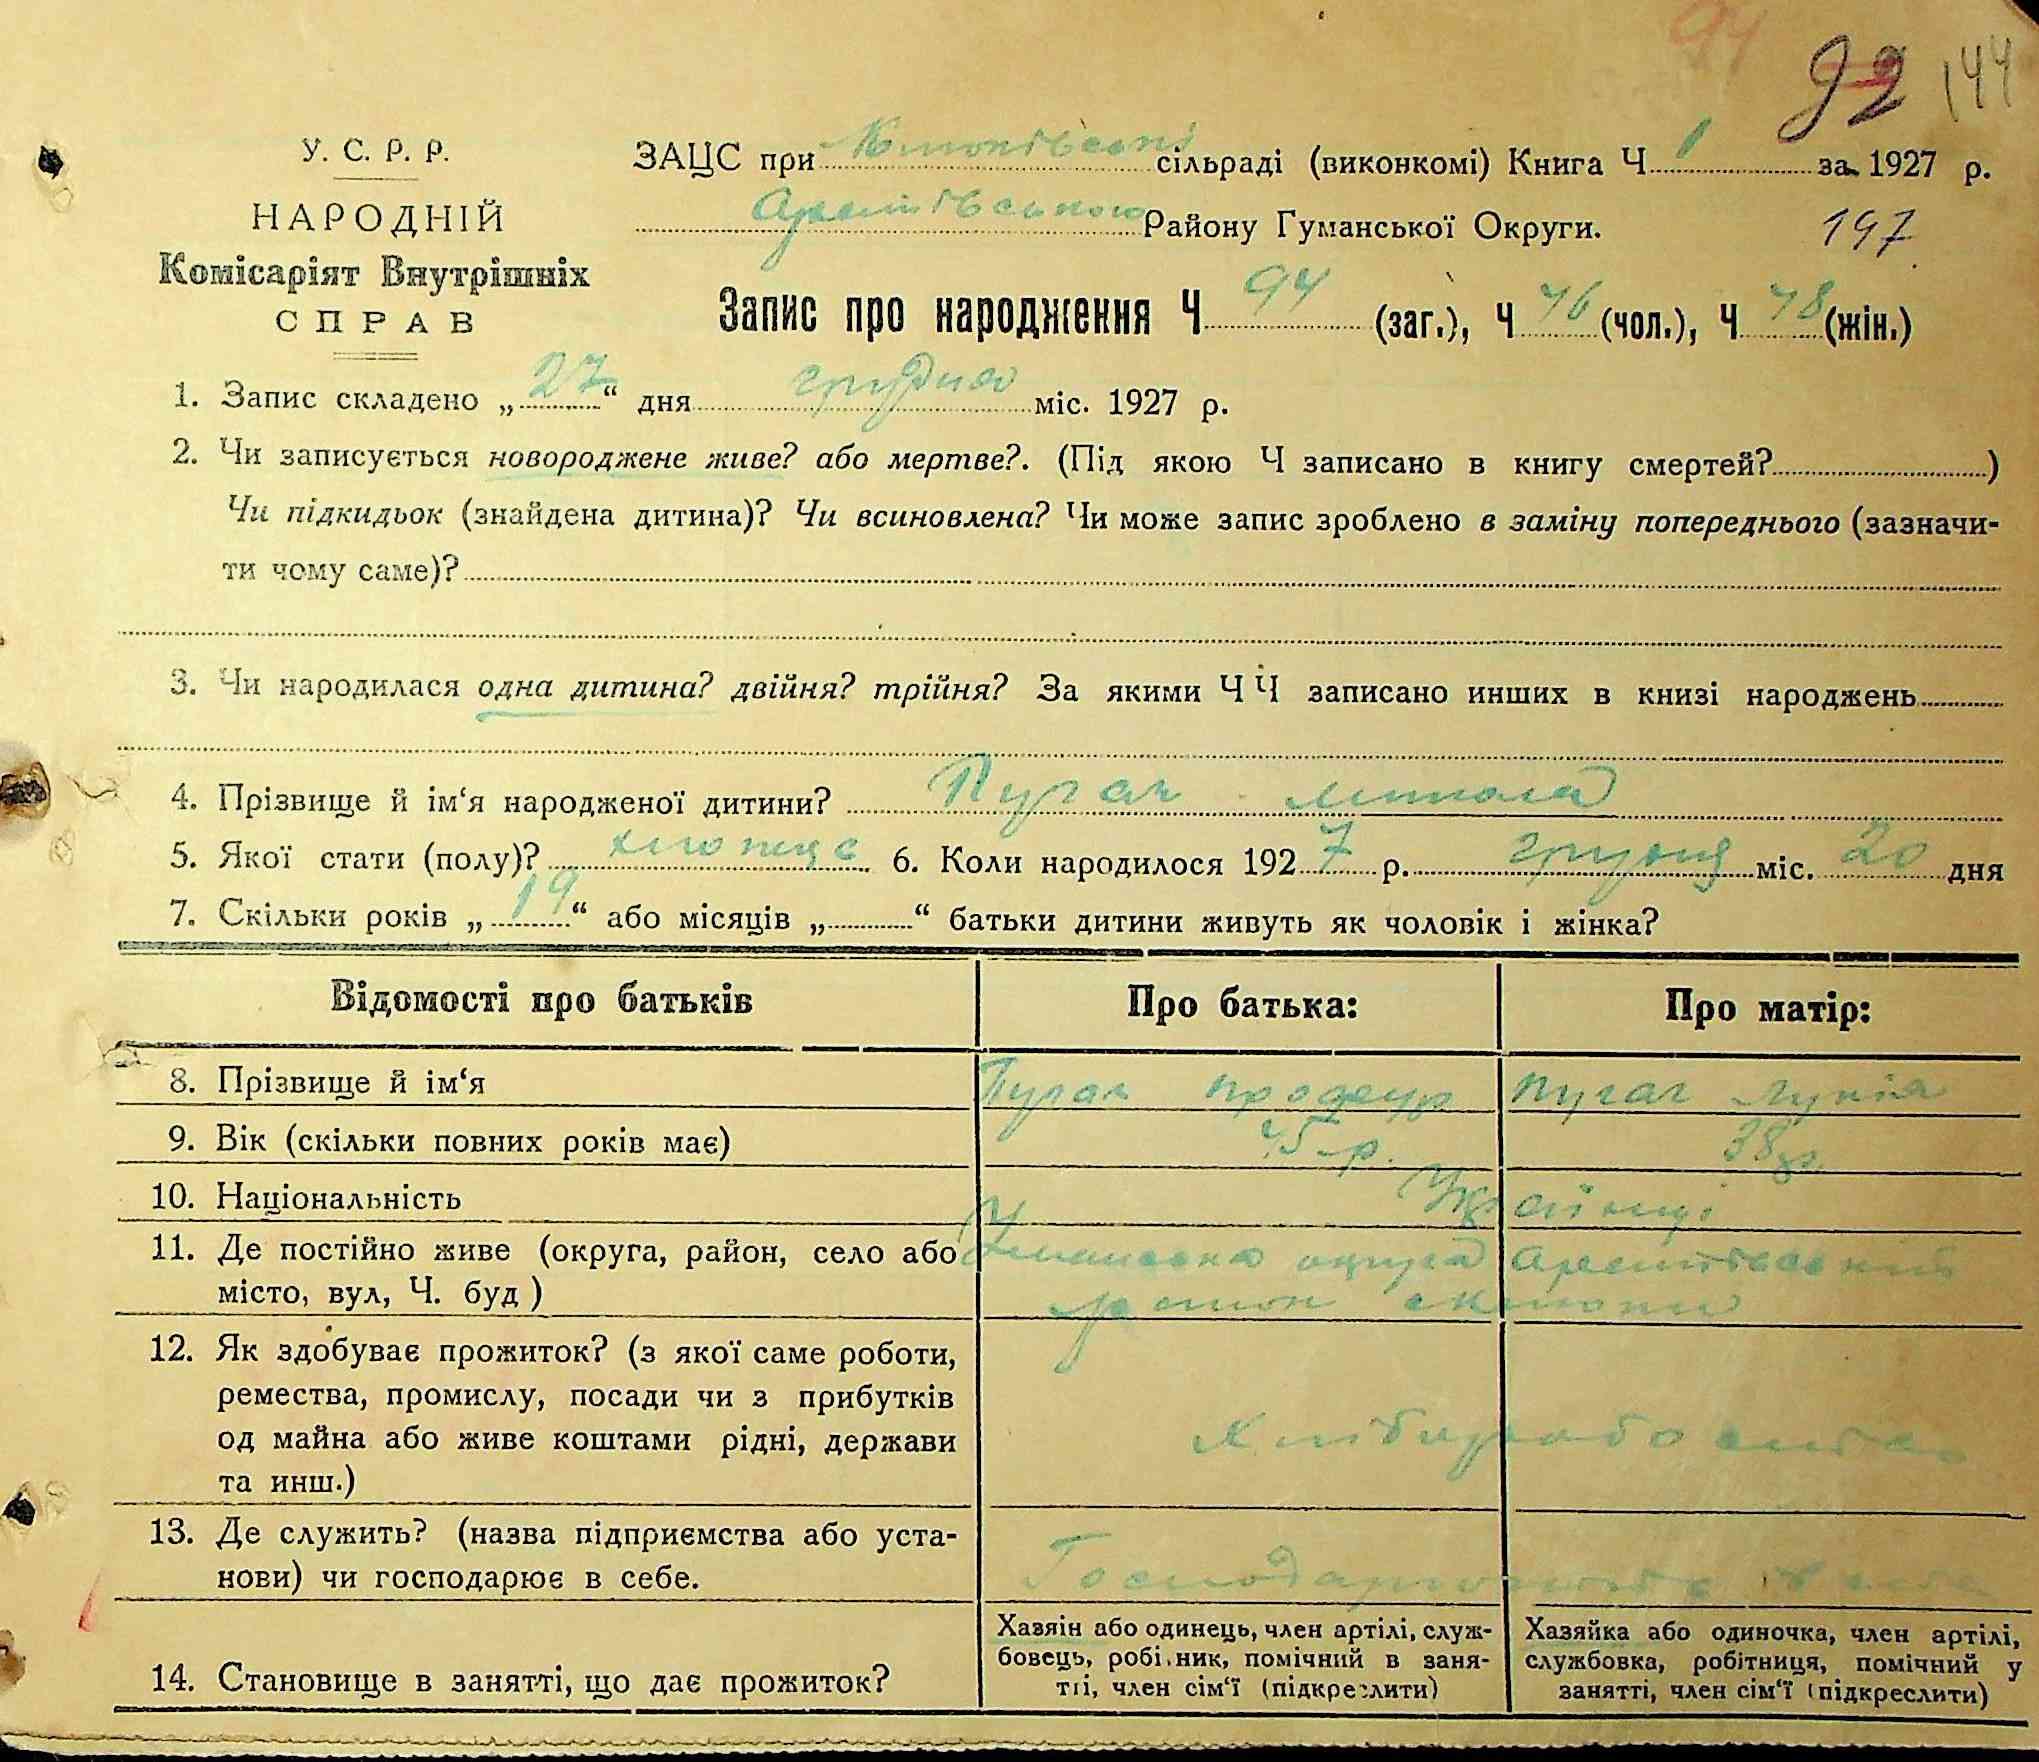 94
92 144
У. С. Р. Р.
НАРОДНІЙ
Комісаріят Внутрішніх
СПРАВ
ЗАЦС при сільраді (виконкомі) Книга Ч 1 за 1927 р.
Району Гуманської Округи.
197
Запис про народження Ч 94 (заг.), Ч 46 (чол.), Ч 48 (жін.)
1. Запис складено „27“ дня грудня міс. 1927 р.
2. Чи записується новороджене живе? або мертве?. (Під якою Ч записано в книгу смертей?)
Чи підкидьок (знайдена дитина)? Чи всиновлена? Чи може запис зроблено в заміну попереднього (зазначи-
ти чому саме)?
3. Чи народилася одна дитина? двійня? трійня? За якими ЧЧ записано инших в книзі народжень
4. Прізвище й ім‘я народженої дитини? Пугач Микола
5. Якої статі (полу)? хлопець 6. Коли народилося 1927 р. грудня міс. 20 дня
7. Скільки років „19“ або місяців „ “ батьки дитини живуть як чоловік і жінка?
Відомості про батьків Про батька: Про матір:
8. Прізвище й ім‘я Пугач Пугач Лукія
9. Вік (скільки повних років має) 45 р. 38 р.
10. Національність Українці
11. Де постійно живе (округа, район, село або Уманська округа
місто, вул, Ч. буд ) район
12. Як здобуває прожиток? (з якої саме роботи,
ремества, промислу, посади чи з прибутків
од майна або живе коштами рідні, держави
та инш.)
13. Де служить? (назва підприємства або уста-
нови) чи господарює в себе.
14. Становище в занятті, що дає прожиток?
Хазяін або одинець, член артілі, служ-
бовець, робітник, помічний в заня-
тті, член сім‘ї (підкреслити)
Хазяйка або одиночка, член артілі,
службовка, робітниця, помічний у
занятті, член сім‘ї (підкреслити)